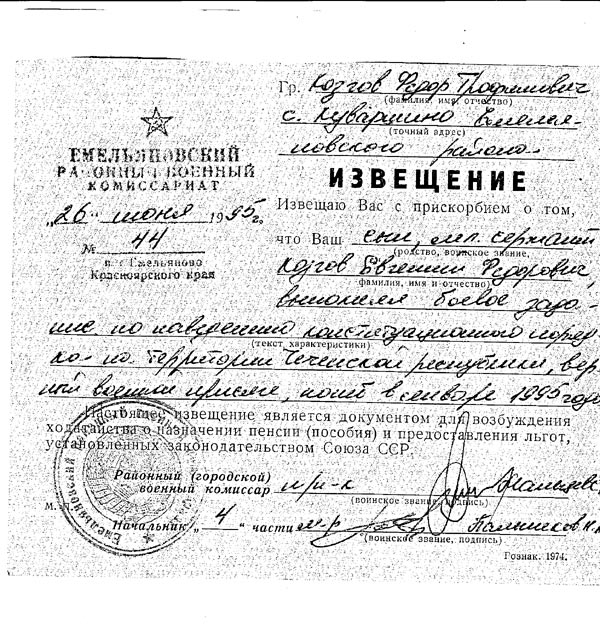 Гр. Козгов Федор Трофимович
(фамилия, имя, отчество)
с. Куваршино Емелья-
(точный адрес)
новского района
ЕМЕЛЬЯНОВСКИЙ
РАЙОННЫЙ ВОЕННЫЙ
КОМИССАРИАТ
„26" июня 1995г.
№ 44
п. г. Емельяново
Красноярского края
ИЗВЕЩЕНИЕ
Извещаю Вас с прискорбием о том,
что Ваш сын, мл. сержант
(родство, воинское звание,
Козгов Евгений Федорович,
фамилия, имя и отчество)
выполняя боевое зада-
ние по наведению конституционного поряд-
(текст характеристики)
ка на территории Чеченской республики, вер-
ный военной присяге, погиб в январе 1995 года
Настоящее извещение является документом для возбуждения
ходатайства о назначении пенсии (пособия) и предоставления льгот,
установленных законодательством Союза ССР.
Районный (городской)
военный комиссар п/п-к
(воинское звание, подпись)
М. П.
Начальник „4" части м-р
(воинское звание, подпись)
Емельяновский
Гознак. 1974.